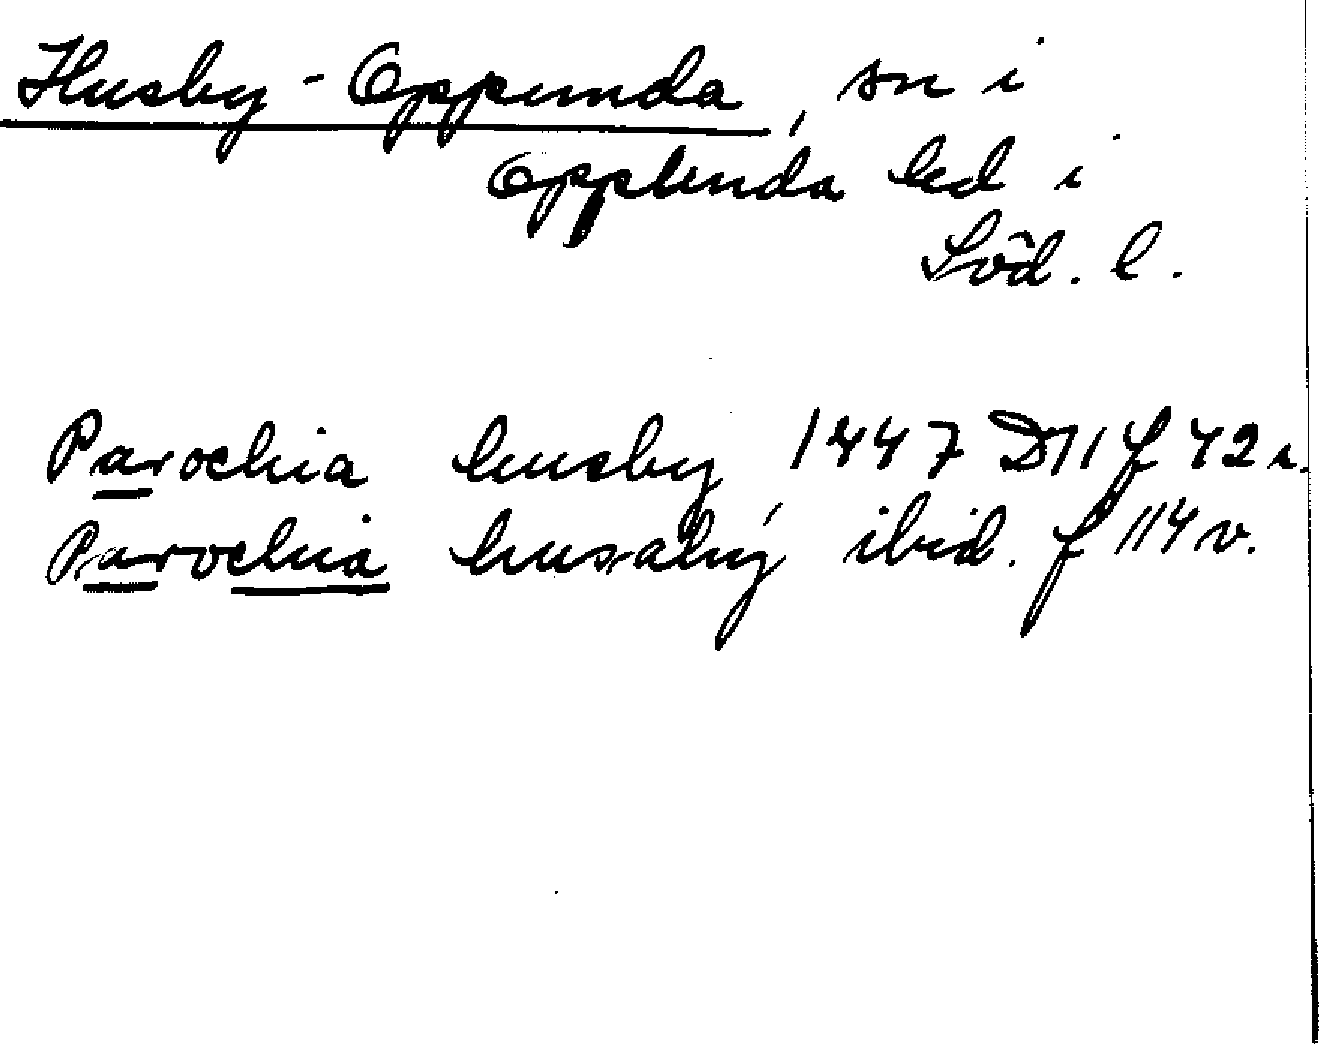 Husby-Oppunda, sn i
Oppunda hd i
Söd. l.
Parochia husby, 1447 D11 f 42 r.
Parochia husaby ibid. f 114 v.